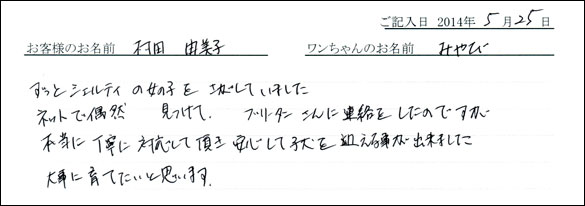 ご記入日 2014年 5月 25日
お客様のお名前 村田 由美子 ワンちゃんのお名前 みやび
ずっとシェルティの女の子をさがしていました
ネットで偶然 見つけて、 ブリーダーさんに連絡をしたのですが
本当に丁寧に対応して頂き安心して子犬を迎える事が出来ました
大事に育てたいと思います。